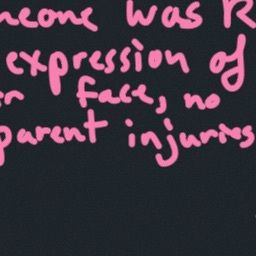 meone was R
expression of
n face, no
parent injuries